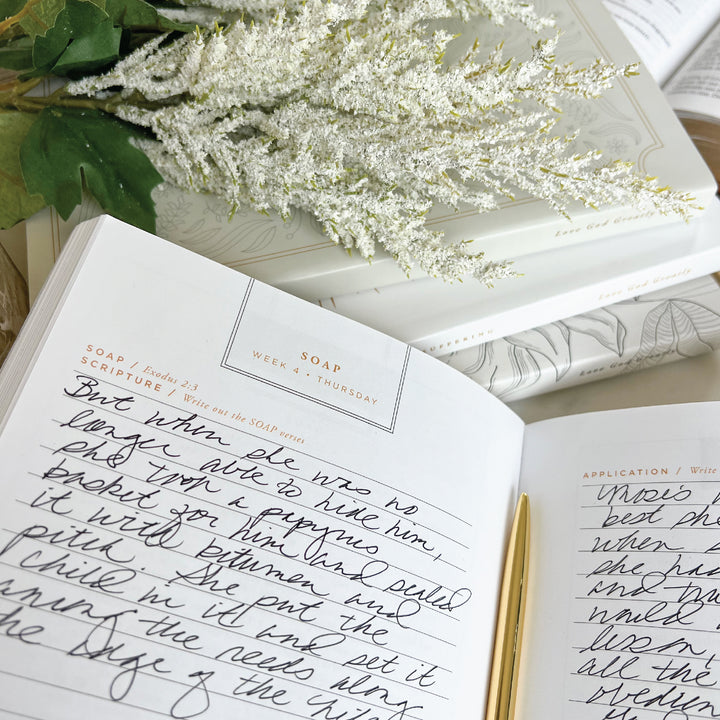 Love God Greatly
Love God Greatly
SUFFERING
Love God Greatly
SOAP
WEEK 4 • THURSDAY
SOAP / Exodus 2:3
SCRIPTURE / Write out the SOAP verses
But when she was no
longer able to hide him,
she took a papyrus
basket for him and sealed
it with bitumen and
pitch. She put the
child in it and set it
among the reeds along
the edge of the Nile.
APPLICATION / Write
Moses'
best she
when
she had
and
would
lesson,
all the